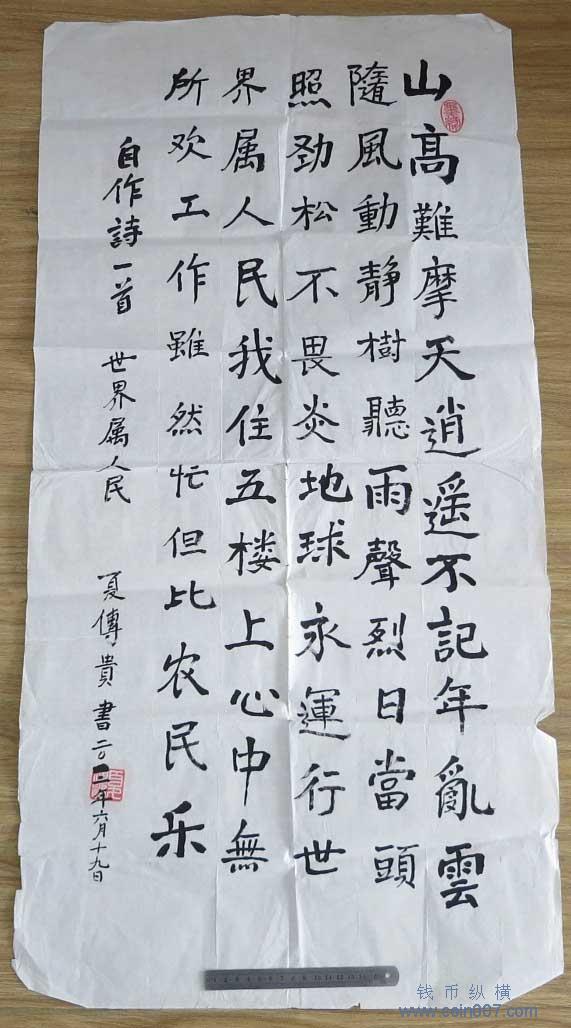 山高難摩天逍遥不記年亂雲
隨風動静樹聽雨聲烈日當頭
照劲松不畏炎地球永運行世
界属人民我住五楼上心中無
所欢工作雖然忙但比农民乐
自作詩一首 世界属人民 夏傳貴書二〇一一年六月十九日
钱币纵横
www.coin007.com